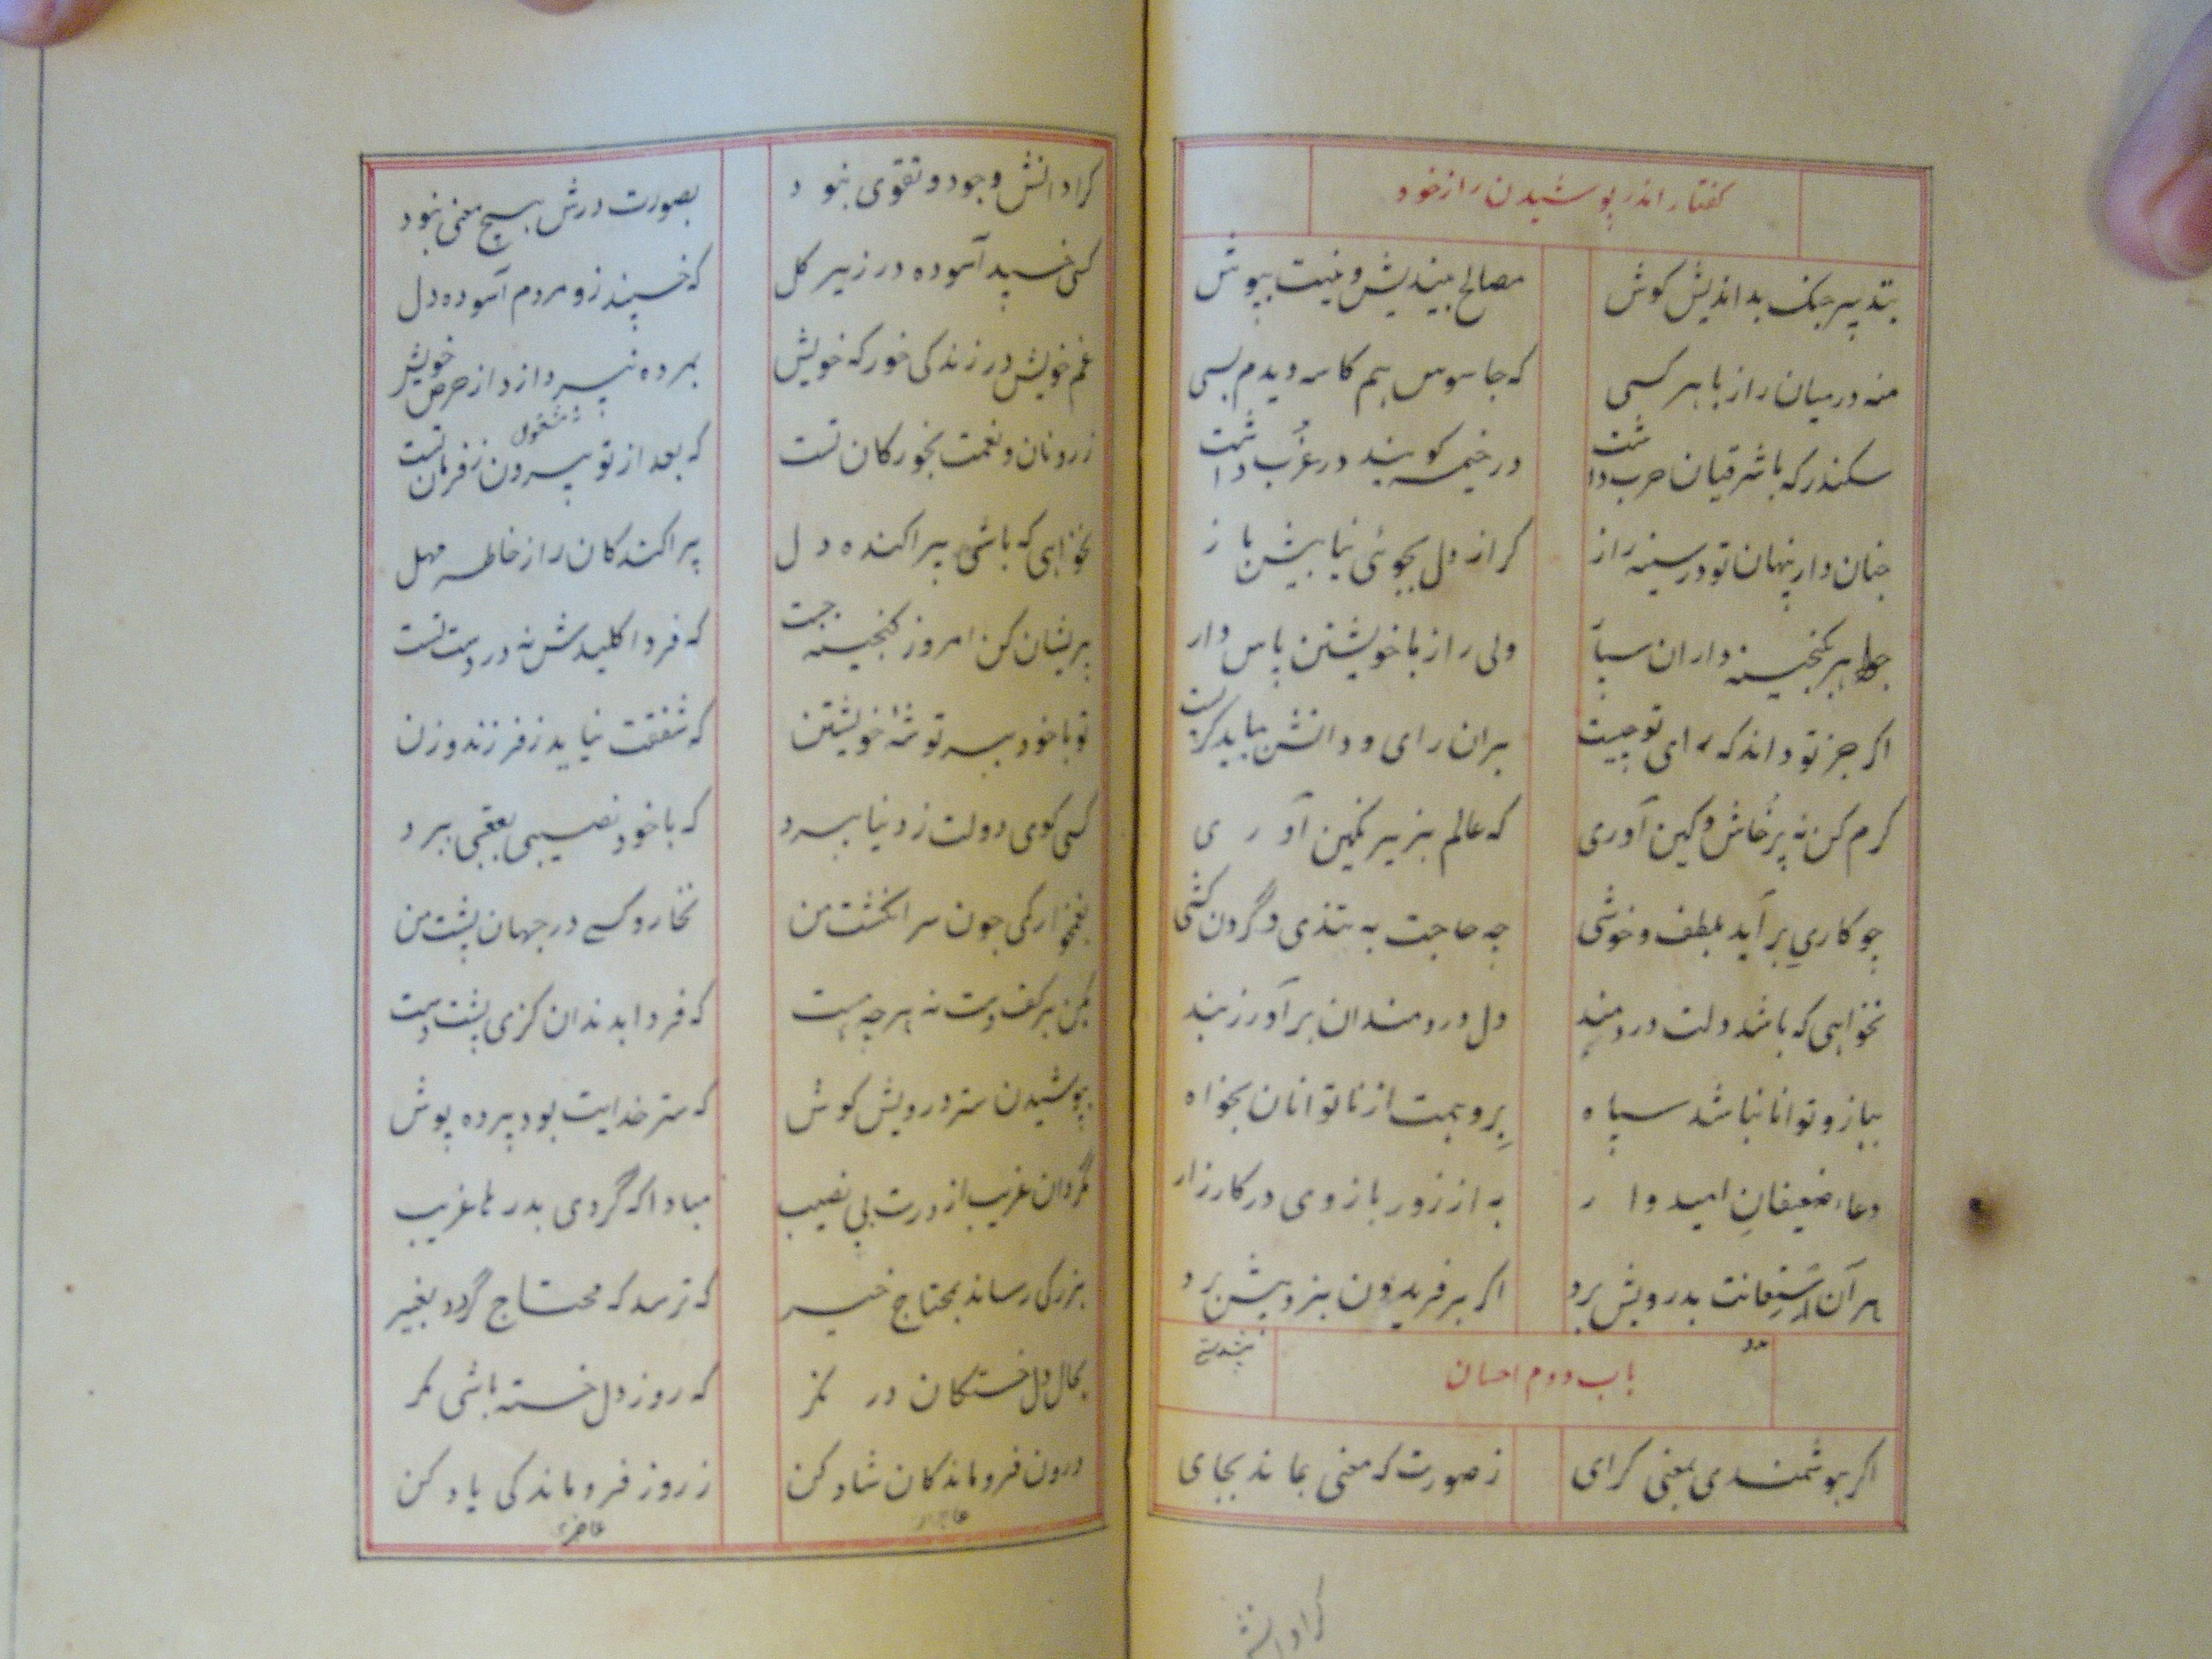 کفتار اندر پوشیدن راز خود
بتدبیر جنک بداندیش کوش مصالح بیندیش و نیت بپوش
منه درمیان راز با هر کسی که جاسوس هم کاسه دیدم بسی
سکندر که با شرقیان حرب داشت در خیمه کویند در غرب داشت
چنان دار پنهان تو در سینه راز کر از دل بجوئی نیابیش باز
جواهر بکنجینه داران سپار ولی راز با خویشتن پاس دار
اکر جز تو داند که رای تو چیست بران رای و دانش بباید کریست
کرم کن نه پرخاش و کین آوری که عالم بزیر نکین آوری
چو کاری برآید بلطف و خوشی چه حاجت به تندی و گردن کشی
نخواهی که باشد دلت دردمند دل دردمندان برآور زبند
ببازو توانا نباشد سپاه برو همت از ناتوانان بخواه
دعاء ضعیفان امیدوار به از زور بازوی در کارزار
هر آن استعانت بدرویش برد اکر بر فریدون بزد پیش برد
باب دوم احسان
اکر هوشمندی بمعنی کرای ز صورت که معنی بماند بجای
کرا دانش
کرا دانش وجود و تقوی نبود بصورت درش هیچ معنی نبود
کسی خسپد آسوده در زیر کل که خسپند زو مردم آسوده دل
غم خویش در زندکی خور که خویش بمرده نپردازد از حرص خویش
مشغول
زر و نان و نعمت بخور کان تست که بعد از تو بیرون ز فرمان تست
نخواهی که باشی پراکنده دل پراکندکان را ز خاطر مهل
پریشان کن امروز کنجینه چست که فردا کلیدش نه در دست تست
تو با خود ببر توشهٔ خویشتن که شفقت نیاید ز فرزند و زن
کسی کوی دولت ز دنیا ببرد که با خود نصیبی بعقبی ببرد
بغمخوارکی چون سر انکشت من نخارد کسے در جهان پشت من
مکن بر کف دست نه هر چه هست که فردا بدندان کزی پشت دست
بپوشیدن ستر درویش کوش که ستر خدایت بود پرده پوش
مگردان غریب از درت بی نصیب مبادا که گردی بدرها غریب
بزرکی رساند بمحتاج خیر که ترسد که محتاج گردد بغیر
بحال دل خستکان در نکر که روز دل خسته باشی مکر
درون فروماندکان شاد کن ز روز فروماندکی یاد کن